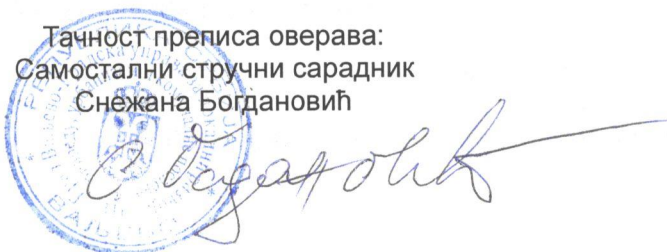 Тачност преписа оверава:
Самостални стручни сарадник
Снежана Богдановић
С Богдановић